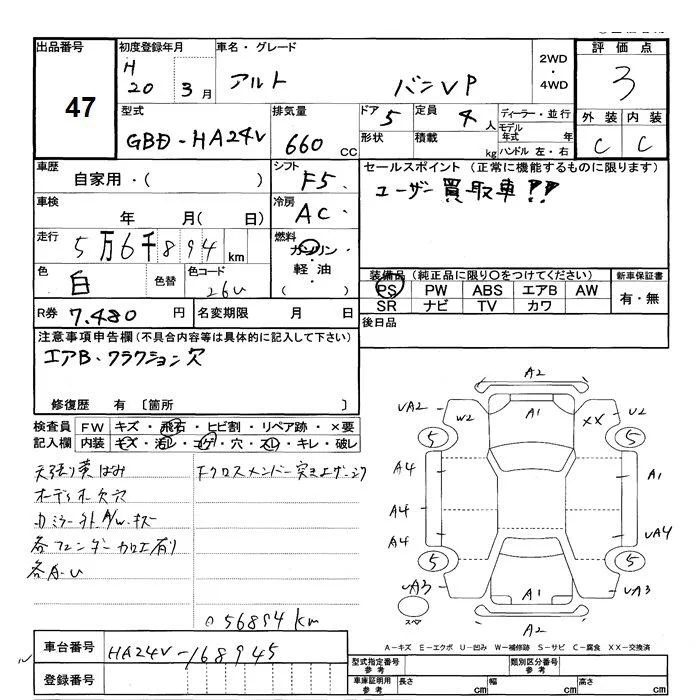 出品番号 初度登録年月 車名・グレード 2WD・4WD 評価点
47 H20 3月 アルト バンVP 3
型式 排気量 ドア 定員 ディーラー・並行 外装 内装
GBD-HA24V 660 CC 5 4人 モデル年式 年 C C
形状 積載 kg ハンドル 左・右
車歴 シフト セールスポイント (正常に機能するものに限ります)
自家用・( ) F5. ユーザー買取車!!
車検 冷房
年 月( 日) AC・
走行 燃料
5万6千894km ガソリン・軽油・( )
色 白 色替 色コード 26U
装備品 (純正品に限り○をつけてください) 新車保証書
PS PW ABS エアB AW 有・無
SR ナビ TV カワ
R券 7,480円 名変期限 月 日 後日品
注意事項申告欄(不具合内容等は具体的に記入して下さい)
エアB、クラクション穴
修復歴 有 〔箇所 〕
検査員記入欄 FW キズ・飛石・ヒビ割・リペア跡・×要
内装 キズ・汚レ・コゲ・穴・スレ・キレ・破レ
天張り黄ばみ Fクロスメンバー突き上ゲ
オーディオ欠穴
カミラー外A/W.キズ
各フェンダー加工有り
056894km
A2
UA2 W2 A1 XX U2
5 5
A4 A1
A4
A4 UA4
5 5
UA3 A1 UA3
スペア A2
A-キズ E-エクボ U-凹み W-補修跡 S-サビ C-腐食 XX-交換済
車台番号 HA24V-168945
登録番号
型式指定番号 参考 類別区分番号 参考
車庫証明用 参考 長さ cm 幅 cm 高さ cm